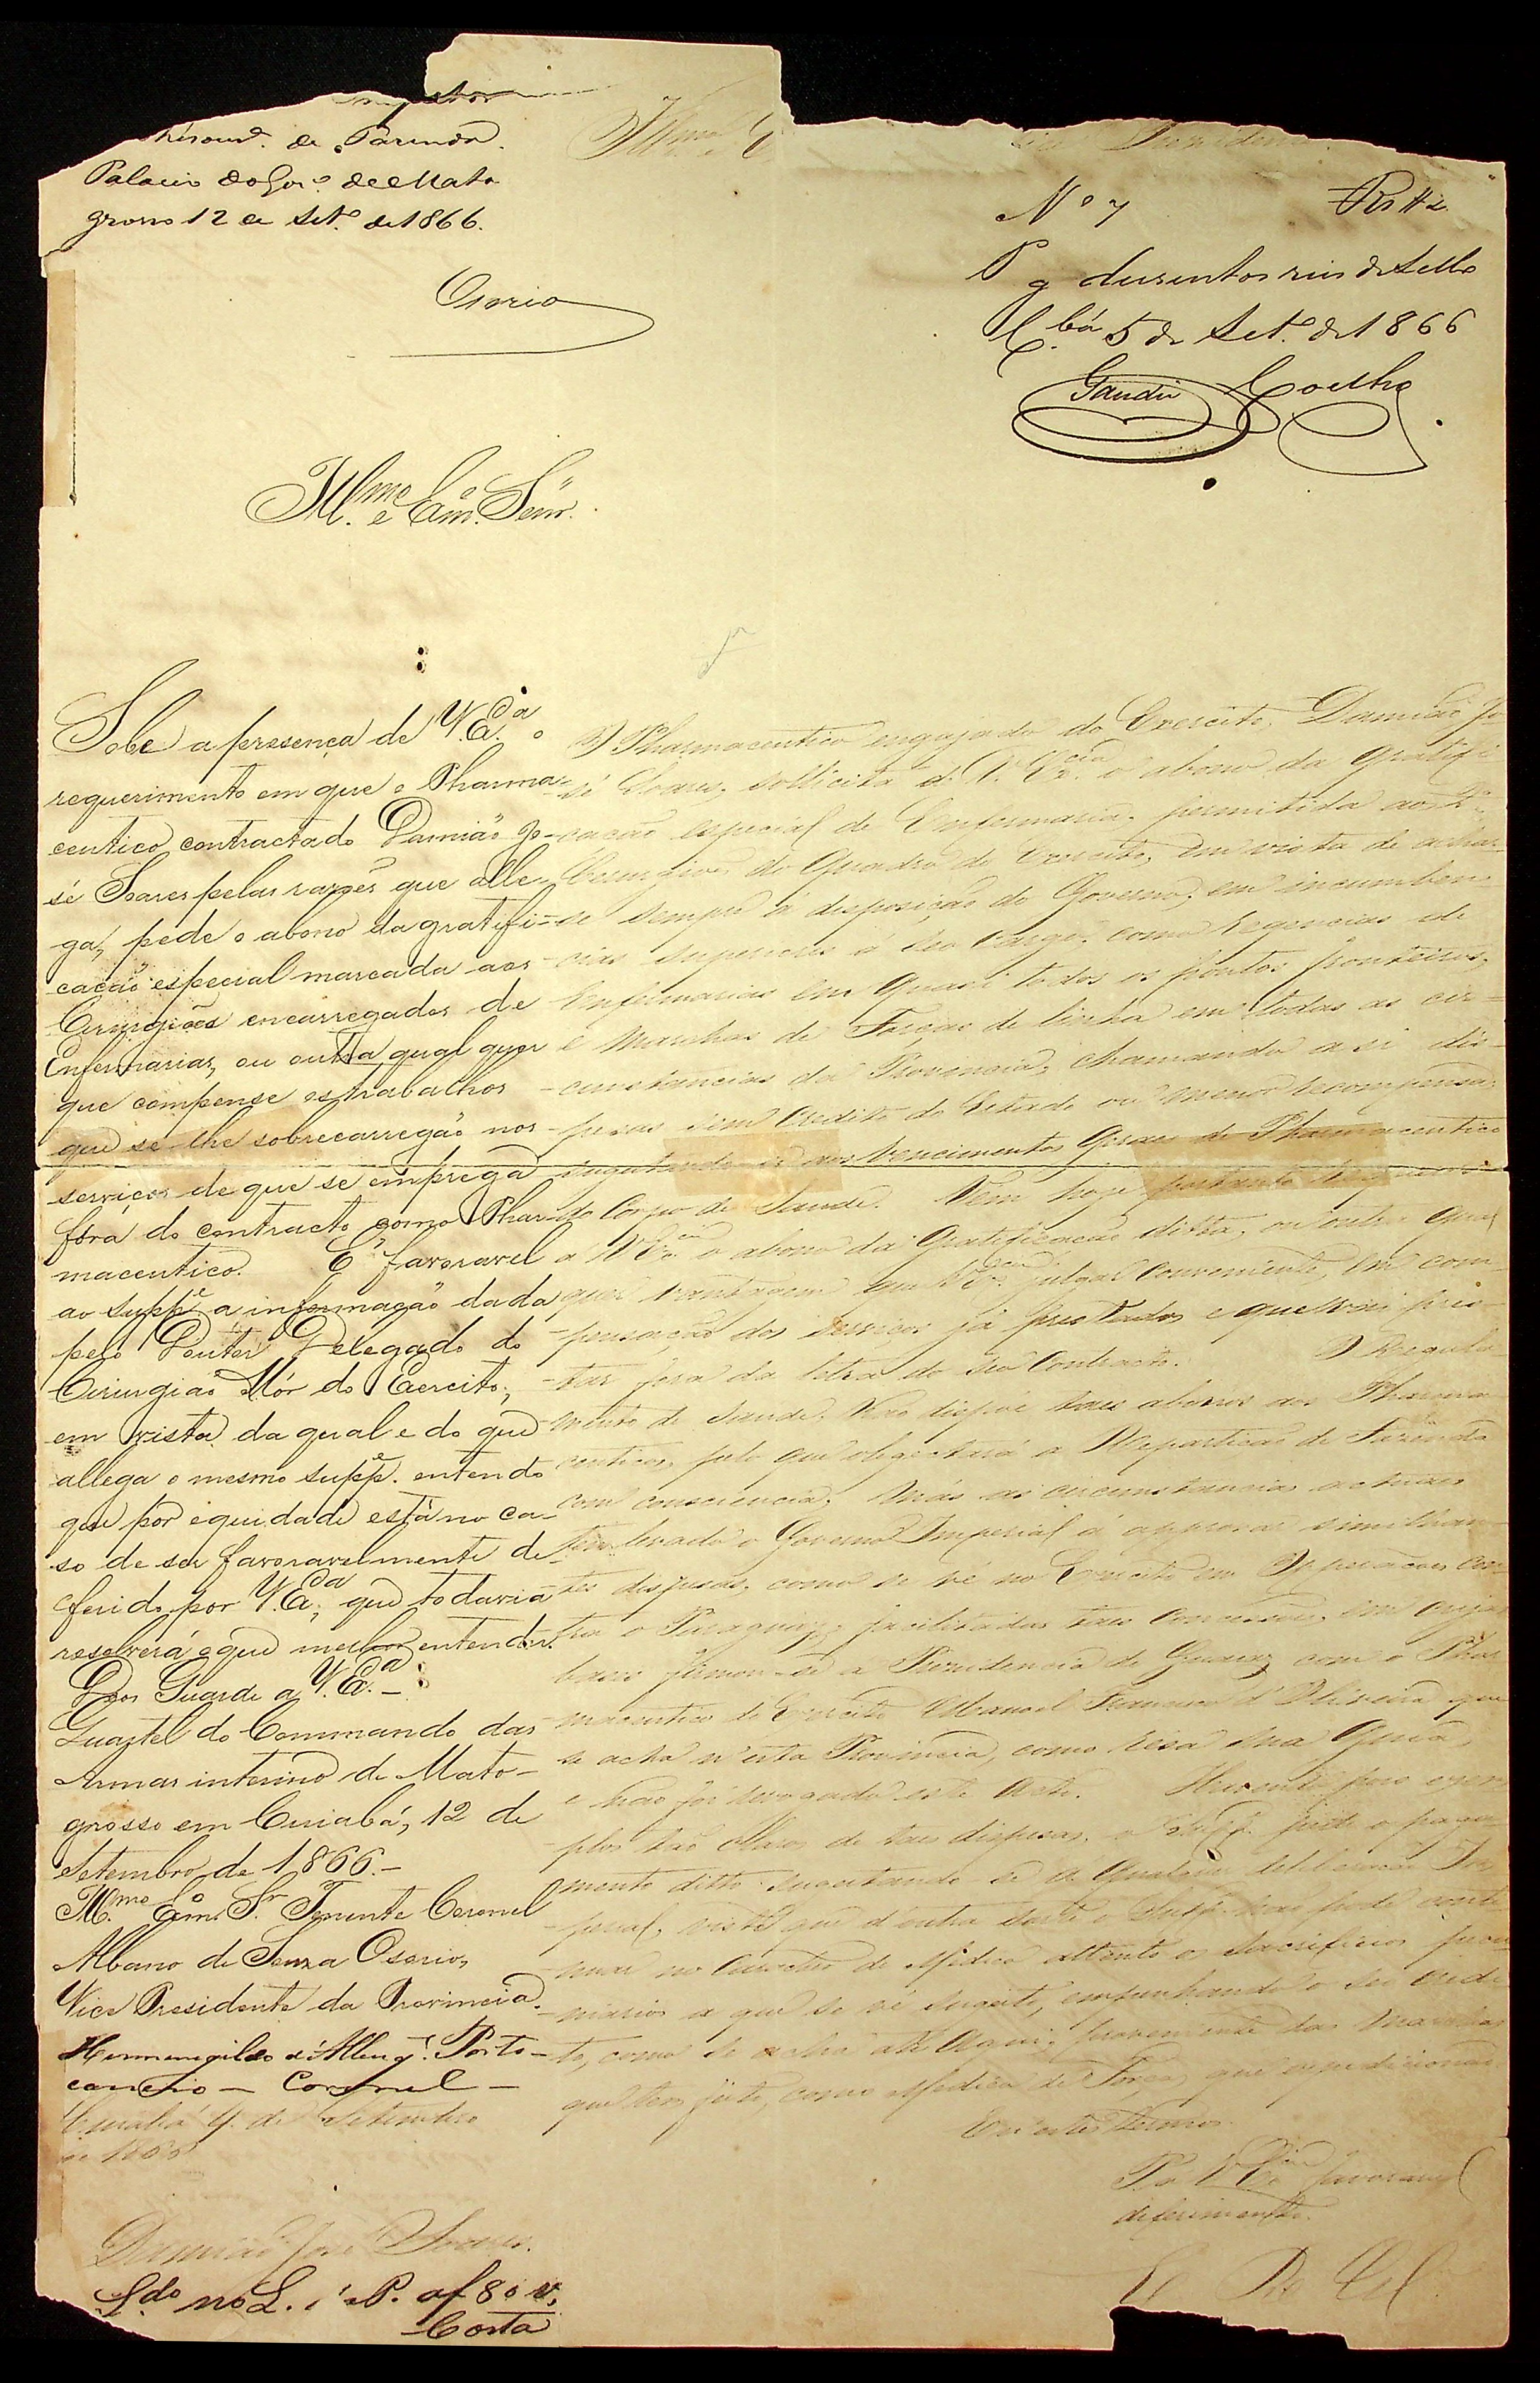 Thesour.ª de Fazenda.
Palacio do Gov.º de Mato
grosso 12 de Set.º de 1866.
Osorio
Nº 7 Rs
Pg dusentos reis de Sello
C.bá 5 de Set.º de 1866
Gaudie Coelho
Ill.mo e Exm.º Senr.
Sobe a presença de V. Ex.cia o
requerimento em que o Pharma-
ceutico contractado Damião Jo-
sé Soares pelas razões que alle-
ga, pede o abono da gratifi-
cação especial marcada aos
Cirurgiões encarregados de
Enfermarias, ou outra qualquer
que compense os trabalhos
que se lhe sobrecarregão nos
serviços de que se emprega
fóra do contracto como Phar-
maceutico. É favoravel
ao supp.e a informação dada
pelo Doutor Delegado do
Cirurgião Mór do Exercito;
em vista da qual e do que
allega o mesmo supp.e entendo
que por equidade está no ca-
so de ser favoravelmente de-
ferido por V. Ex.cia, que todavia
resolverá o que melhor entender.
Deos Guarde a V. Ex.cia
Quartel do Commando das
Armas interino de Mato-
grosso em Cuiabá, 12 de
Setembro de 1866.-
Ill.mo Exm.º S.r Tenente Coronel
Albano de Souza Osorio,
Vice Presidente da Provincia.
Hermenegildo d'Albuq.e Porto-
carreiro - Coronel -
Cuiabá 4 de Setembro
de 1866
Damião José Soares.
L.do no L. 1º P. af 80 v.
Costa
O Pharmaceutico engajado do Exercito, Damião Jo-
sé Soares, sollicita de V. Ex.cia o abono da gratifi-
cação especial de Enfermaria, permitida aos Ci-
rurgiões do Quadro do Exercito, em vista de achar-
se sempre á disposição do Governo, em incumben-
cias superiores á seo cargo, como regencias de
Enfermarias em quasi todos os pontos fronteiros,
e marchas de Forças de linha em todas as cir-
cunstancias da Provincia, chamando a si dis-
pesas sem credito do Estado ou menor recompensa
sugeitando-se aos vencimentos geraes de Pharmaceutico
do Corpo de Saude. Vem hoje portanto
a V. Ex.cia o abono da Gratificação dicta, ou outra qual
quer vantagem que V. Ex.cia julgar conveniente, em com-
pensação dos serviços já prestados e que vai pres-
tar fora da letra do seo Contracto. O Regula-
mento de Saude, não dispõe taes abonos aos Pharma-
ceuticos, pelo que objectará a Repartição de Fazenda
com consciencia; mas as circunstancias actuaes
tem levado o Governo Imperial á approvar similhan-
tes dispesas, como se vê no Exercito em Operações con-
tra o Paraguay, facilitadas taes concessões, em cujas
bases firmou-se a Presidencia de Goiaz com o Phar-
maceutico do Exercito Manoel Francisco d'Oliveira que
se acha n'esta Provincia, como resa sua Guia,
e não foi revogado este acto. Havendo pois exem-
plos tão claros de taes dispesas, o Supp.e pede o paga-
mento ditto sugeitando-se á qualquer deliberação Im-
perial, visto que d'outra sorte o Supp.e não pode conti-
nuar no caracter de Medico attento os sacrificios pecu-
niarios a que se vê sugeito, empenhando o seo credi-
to, como se acha até aqui, proveniente das marchas
que tem feito, como Medico de Força que expedicionão
En'estes termos
P. a V. Ex.cia favoravel
deferimento.
E. R. M.